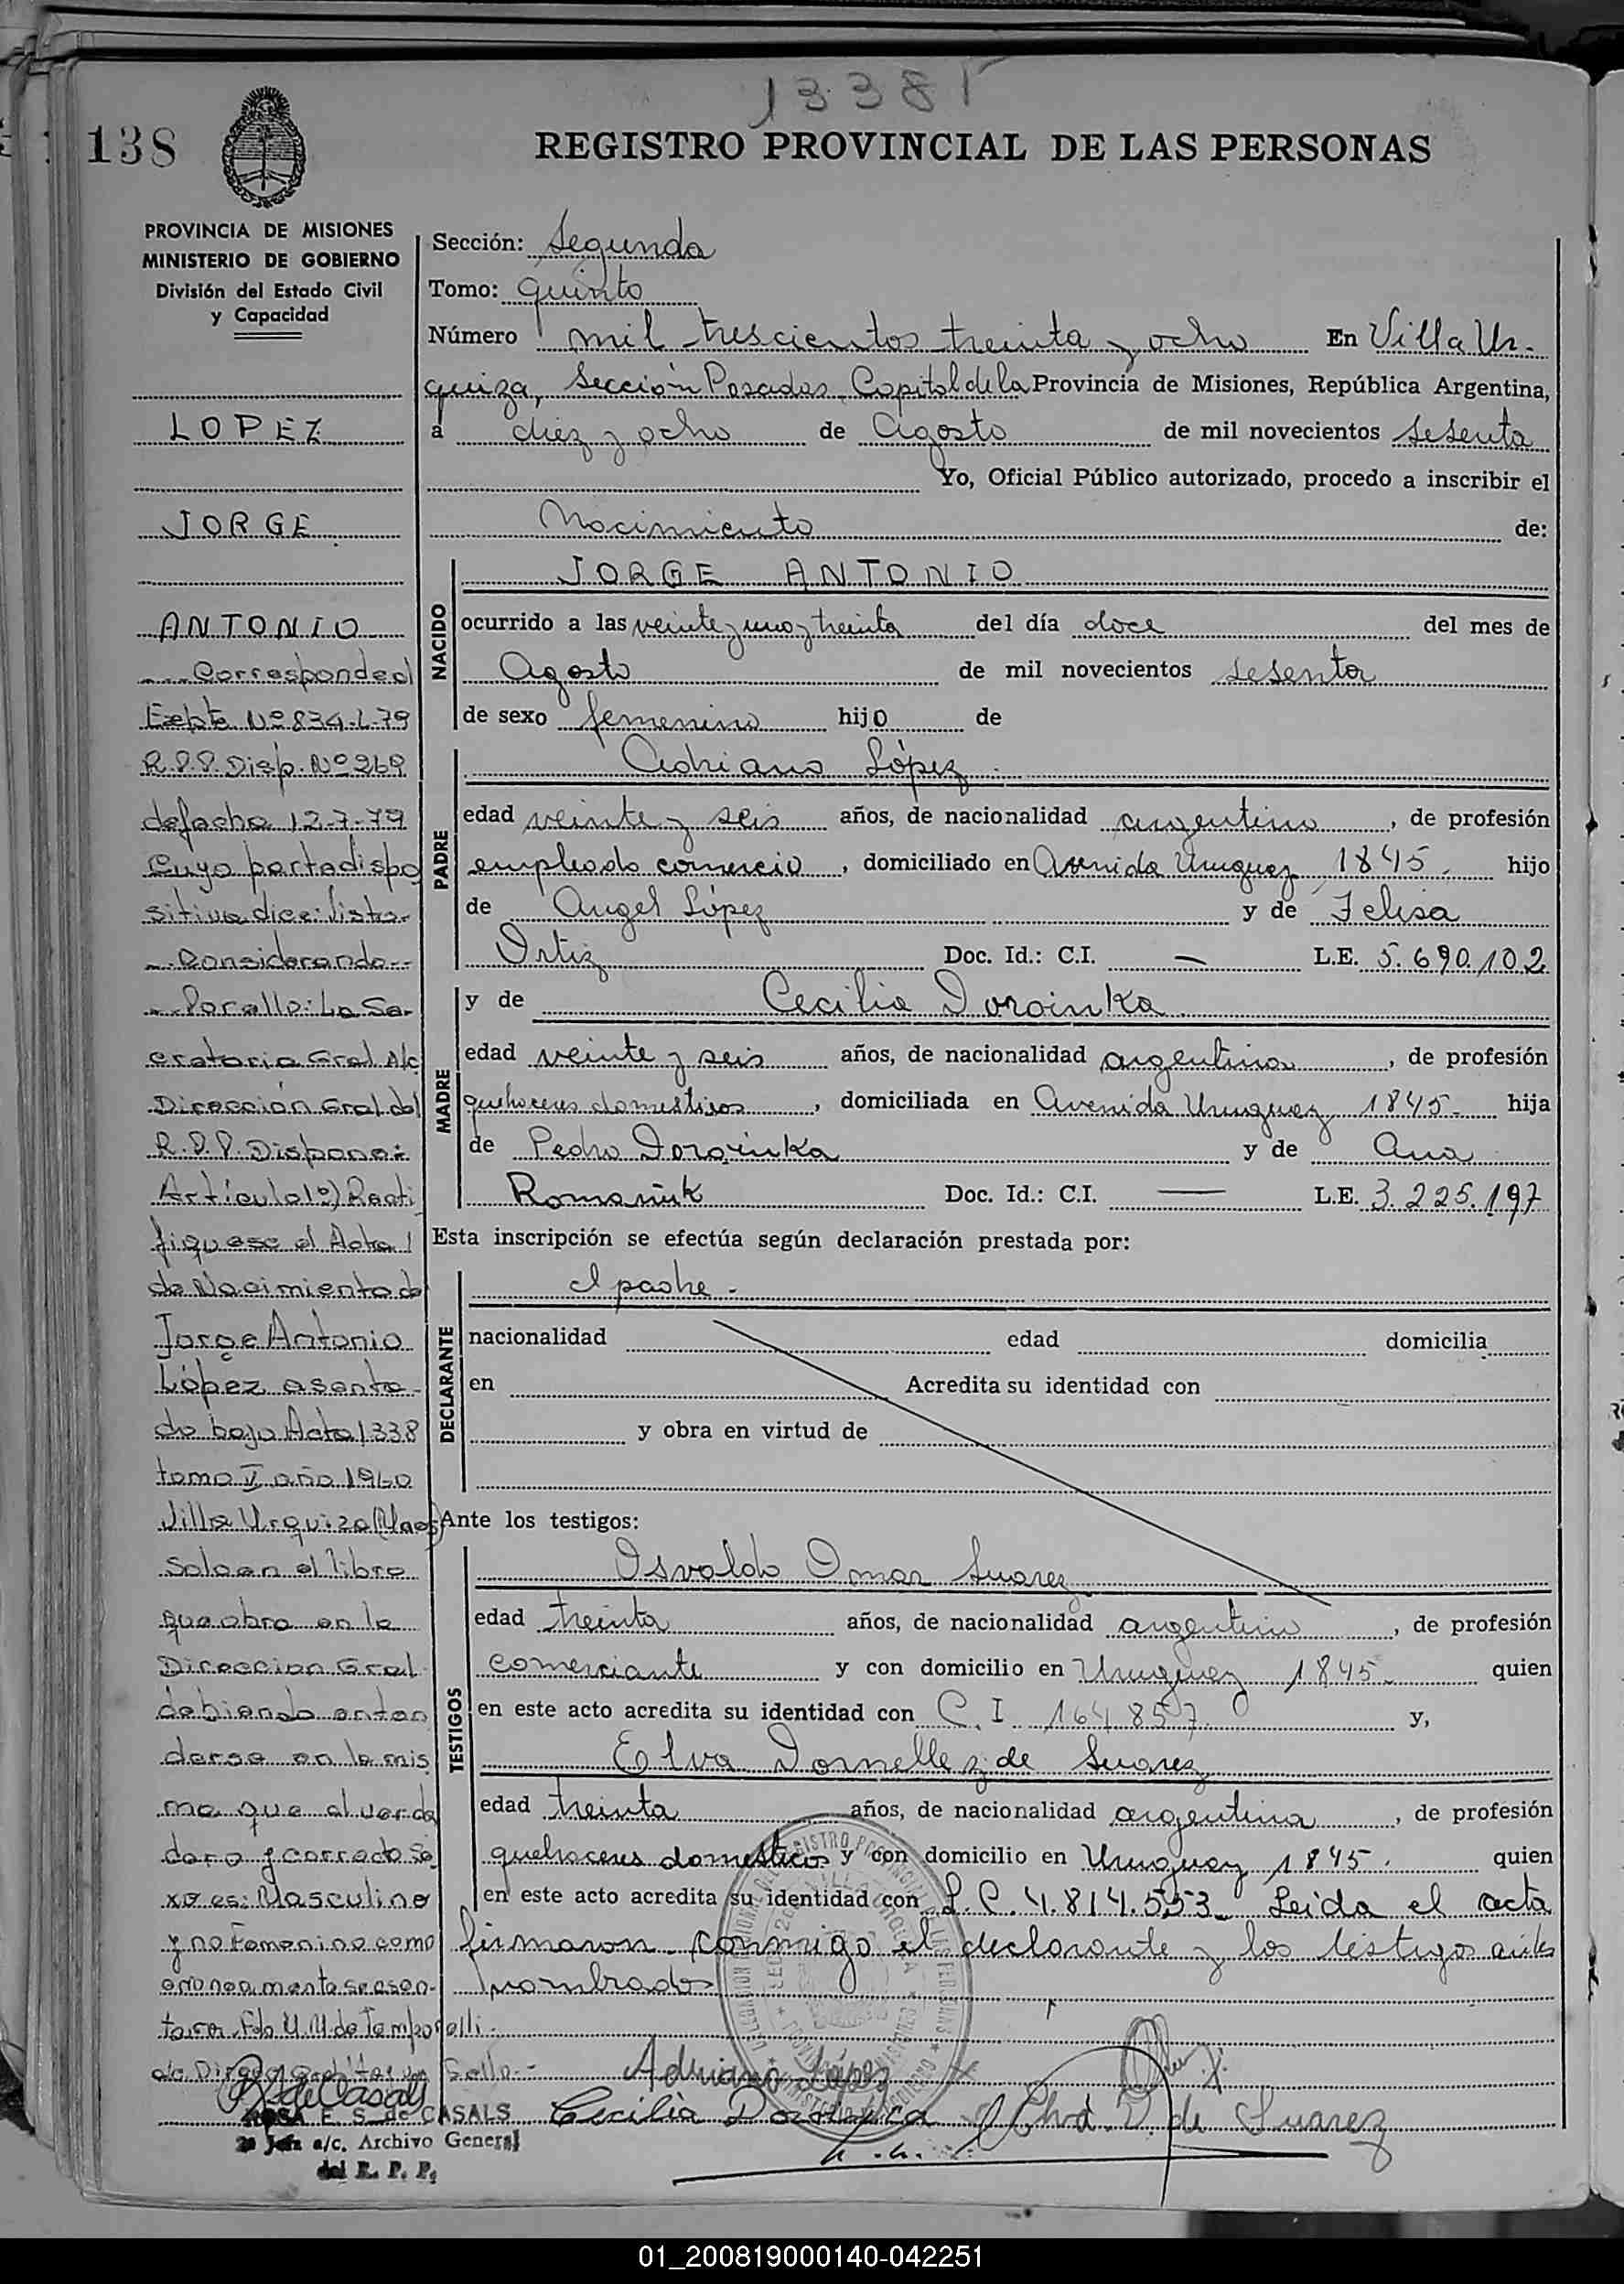 1338
138
REGISTRO PROVINCIAL DE LAS PERSONAS
PROVINCIA DE MISIONES
MINISTERIO DE GOBIERNO
División del Estado Civil
y Capacidad
LOPEZ
JORGE
ANTONIO
Corresponde al
Expte Nº 834-L-79
R.P.P. Disp. Nº 269
de fecha 12-7-79
Cuya parte dispo
sitiva dice: Visto-
Considerando--
Por ello: La Se-
cretaria Gral A/c
Dirección Gral del
R.P.P. Dispone:
Artículo 1º) Recti
fíquese el Acta
de Nacimiento de
Jorge Antonio
López asenta-
do bajo Acta 1338
tomo V año 1960
Villa Urquiza (Mnes)
Solo en el libro
que obra en la
Direccion Gral
debiendo enten
derse en la mis
ma que el verda
dero y correcto Se
xo es: Masculino
y no Femenino como
erroneamente se asen-
tara. Fdo
Sello.-
ROSA E. S. de CASALS
a/c. Archivo General
del R. P. P.
Sección: Segunda
Tomo: quinto
Número mil trescientos treinta y ocho En Villa Ur-
quiza, Sección Posadas, Capital de la Provincia de Misiones, República Argentina,
a diez y ocho de Agosto de mil novecientos sesenta
Yo, Oficial Público autorizado, procedo a inscribir el
Nacimiento de:
NACIDO
JORGE ANTONIO
ocurrido a las veinte y uno y treinta del día doce del mes de
Agosto de mil novecientos sesenta
de sexo femenino hijo de
PADRE
Adriano López
edad veinte y seis años, de nacionalidad argentino, de profesión
empleado comercio, domiciliado en Avenida Uruguay 1845. hijo
de Angel López y de Felisa
Ortiz Doc. Id.: C.I. — L.E. 5.690.102
MADRE
y de Cecilia Doroinka
edad veinte y seis años, de nacionalidad argentina, de profesión
quehaceres domesticos, domiciliada en Avenida Uruguay 1845- hija
de Pedro Doroinka y de Ana
Romaniuk Doc. Id.: C.I. — L.E. 3.225.197
Esta inscripción se efectúa según declaración prestada por:
DECLARANTE
el padre.-
nacionalidad edad domicilia
en Acredita su identidad con
y obra en virtud de
Ante los testigos:
TESTIGOS
Osvaldo Omar Suarez
edad treinta años, de nacionalidad argentino, de profesión
comerciante y con domicilio en Uruguay 1845- quien
en este acto acredita su identidad con C. I. 164.857. y,
Elva Dornelles de Suarez
edad treinta años, de nacionalidad argentina, de profesión
quehaceres domesticos y con domicilio en Uruguay 1845. quien
en este acto acredita su identidad con L.C. 4.814.553- Leida el acta
firmaron conmigo el declarante y los testigos antes
nombrados
Adriano López
Cecilia Elva D. de Suarez
01_200819000140-042251